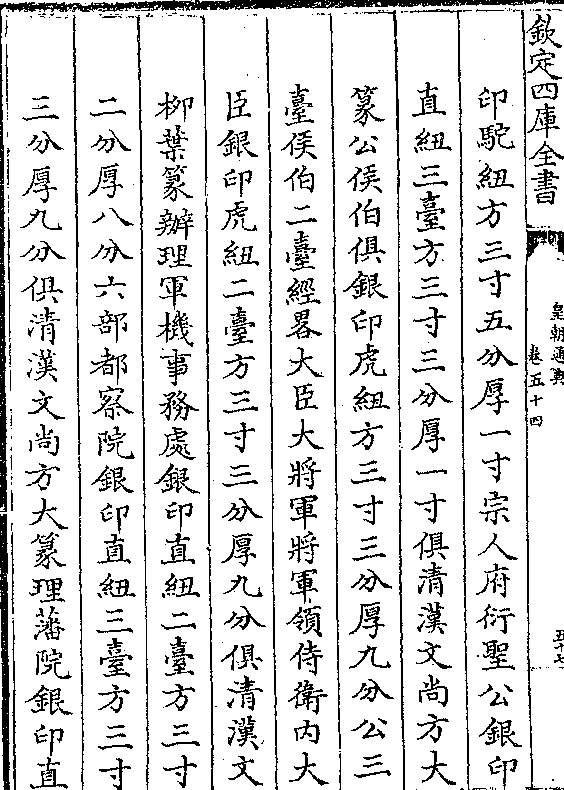 欽定四庫全書
皇朝通典
卷五十四
五十七
印駝紐方三寸五分厚一寸宗人府衍聖公銀印
直紐三臺方三寸三分厚一寸俱清漢文尚方大
篆公侯伯俱銀印虎紐方三寸三分厚九分公三
臺侯伯二臺經畧大臣大將軍將軍領侍衛內大
臣銀印虎紐二臺方三寸三分厚九分俱清漢文
柳葉篆辦理軍機事務處銀印直紐二臺方三寸
二分厚八分六部都察院銀印直紐三臺方三寸
三分厚九分俱清漢文尚方大篆理藩院銀印直